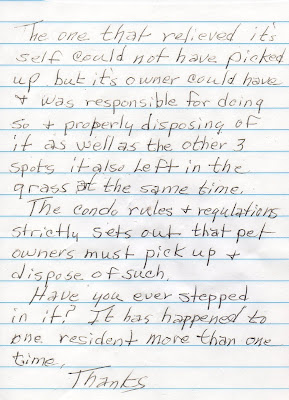 The one that relieved it's
self could not have picked
up but it's owner could have
+ was responsible for doing
so + properly disposing of
it as well as the other 3
spots it also left in the
grass at the same time.
The condo rules + regulations
strictly sets out that pet
owners must pick up +
dispose of such.
Have you ever stepped
in it? It has happened to
one resident more than one
time.
Thanks